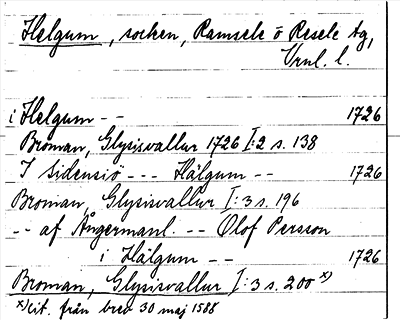 Helgum, socken, Ramsele o Resele tg,
Vrnl. l.
i Helgum -- 1726
Broman, Glysisvallur 1726 I:2 s. 138
I Sidensiö --- Hälgum -- 1726
Broman, Glysisvallur I:3 s. 196
-- af Ångermanl. -- Olof Persson
i Hälgum -- 1726
Broman, Glysisvallur I:3 s. 200 x)
x) cit. från brev 30 maj 1588